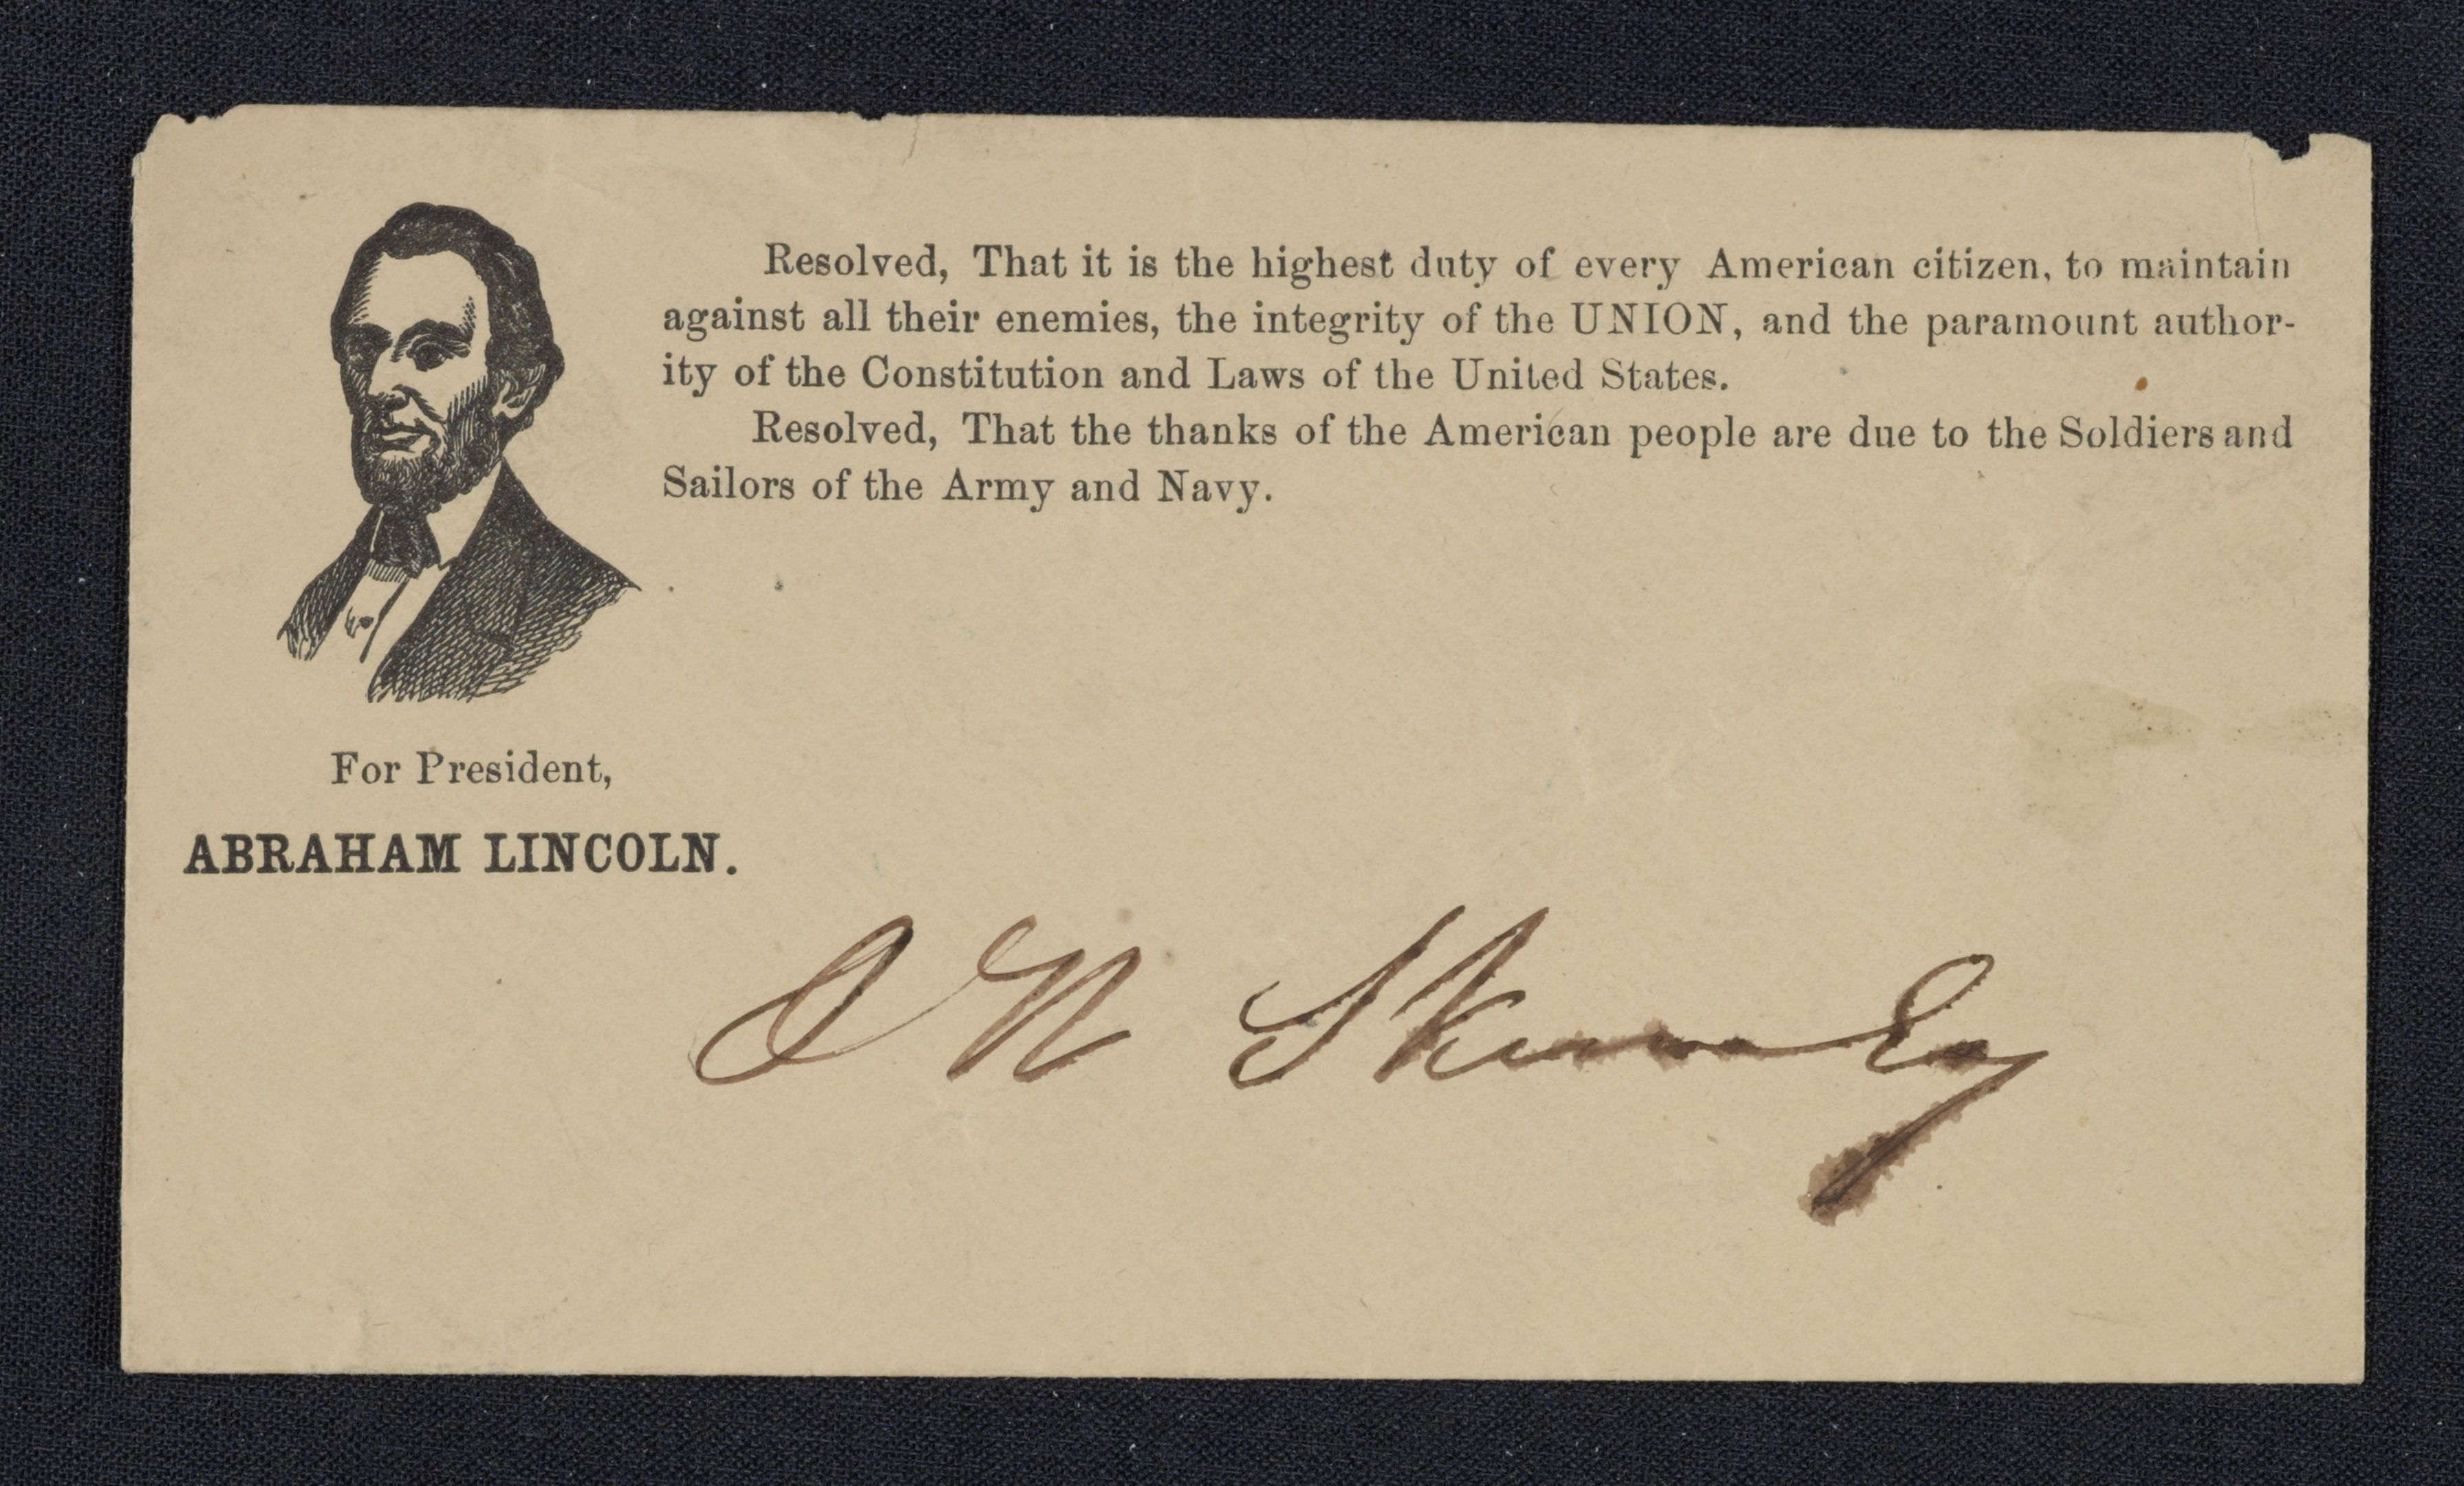 Resolved, That it is the highest duty of every American citizen, to maintain
against all their enemies, the integrity of the UNION, and the paramount author-
ity of the Constitution and Laws of the United States.
Resolved, That the thanks of the American people are due to the Soldiers and
Sailors of the Army and Navy.
For President,
ABRAHAM LINCOLN.